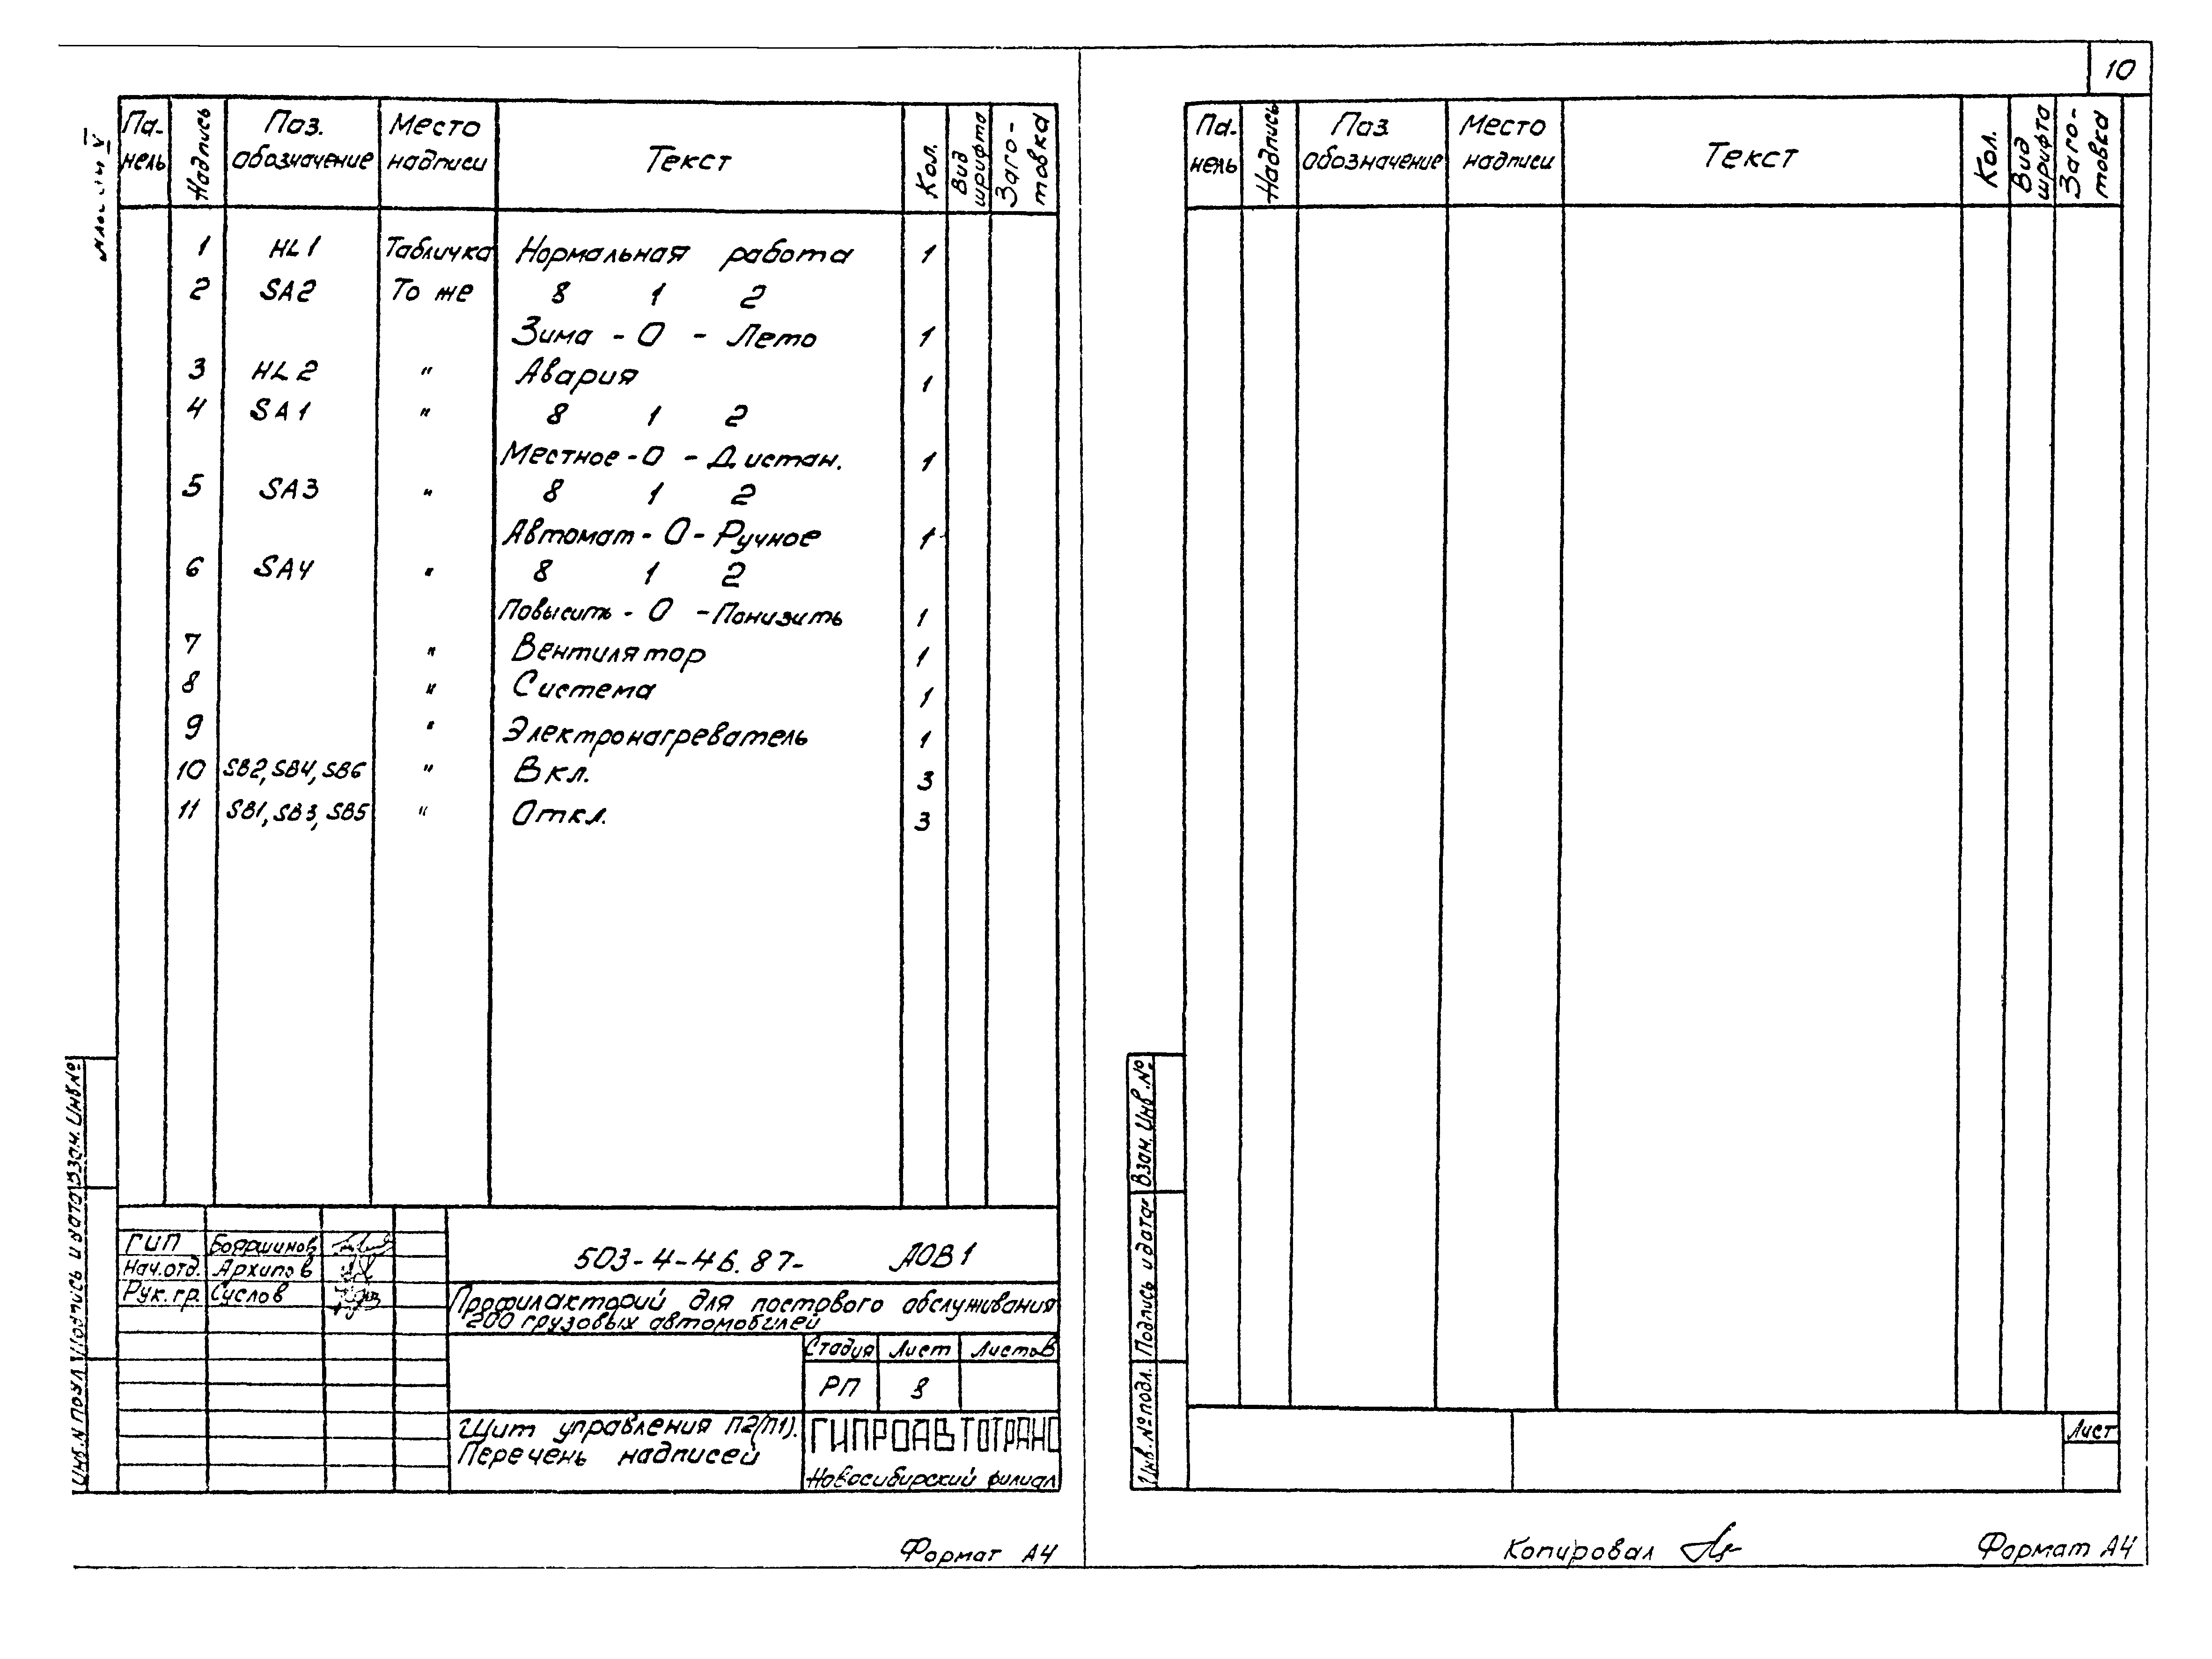 10
Альбом V
Па-нель Надпись Поз. обозначение Место надписи Текст Кол. Вид шрифта Заго-товка
1 HL1 Табличка Нормальная работа 1
2 SA2 То же 8 1 2
Зима - 0 - Лето 1
3 HL2 " Авария 1
4 SA1 " 8 1 2
Местное - 0 - Дистан. 1
5 SA3 " 8 1 2
Автомат - 0 - Ручное 1
6 SA4 " 8 1 2
Повысить - 0 - Понизить 1
7 " Вентилятор 1
8 " Система 1
9 " Электронагреватель 1
10 SB2, SB4, SB6 " Вкл. 3
11 SB1, SB3, SB5 " Откл. 3
Инв.№ подл. Подпись и дата Взам. Инв.№
ГИП Бояршинов
Нач.отд. Архипов
Рук. гр. Суслов
503-4-46.87- АОВ1
Профилакторий для постового обслуживания
200 грузовых автомобилей
Стадия Лист Листов
РП 8
Щит управления П2(П1).
Перечень надписей
ГИПРОАВТОТРАНС
Новосибирский филиал
Формат А4
Па-нель Надпись Поз. обозначение Место надписи Текст Кол. Вид шрифта Заго-товка
Инв. № подл. Подпись и дата Взам. Инв. №
Лист
Копировал
Формат А4